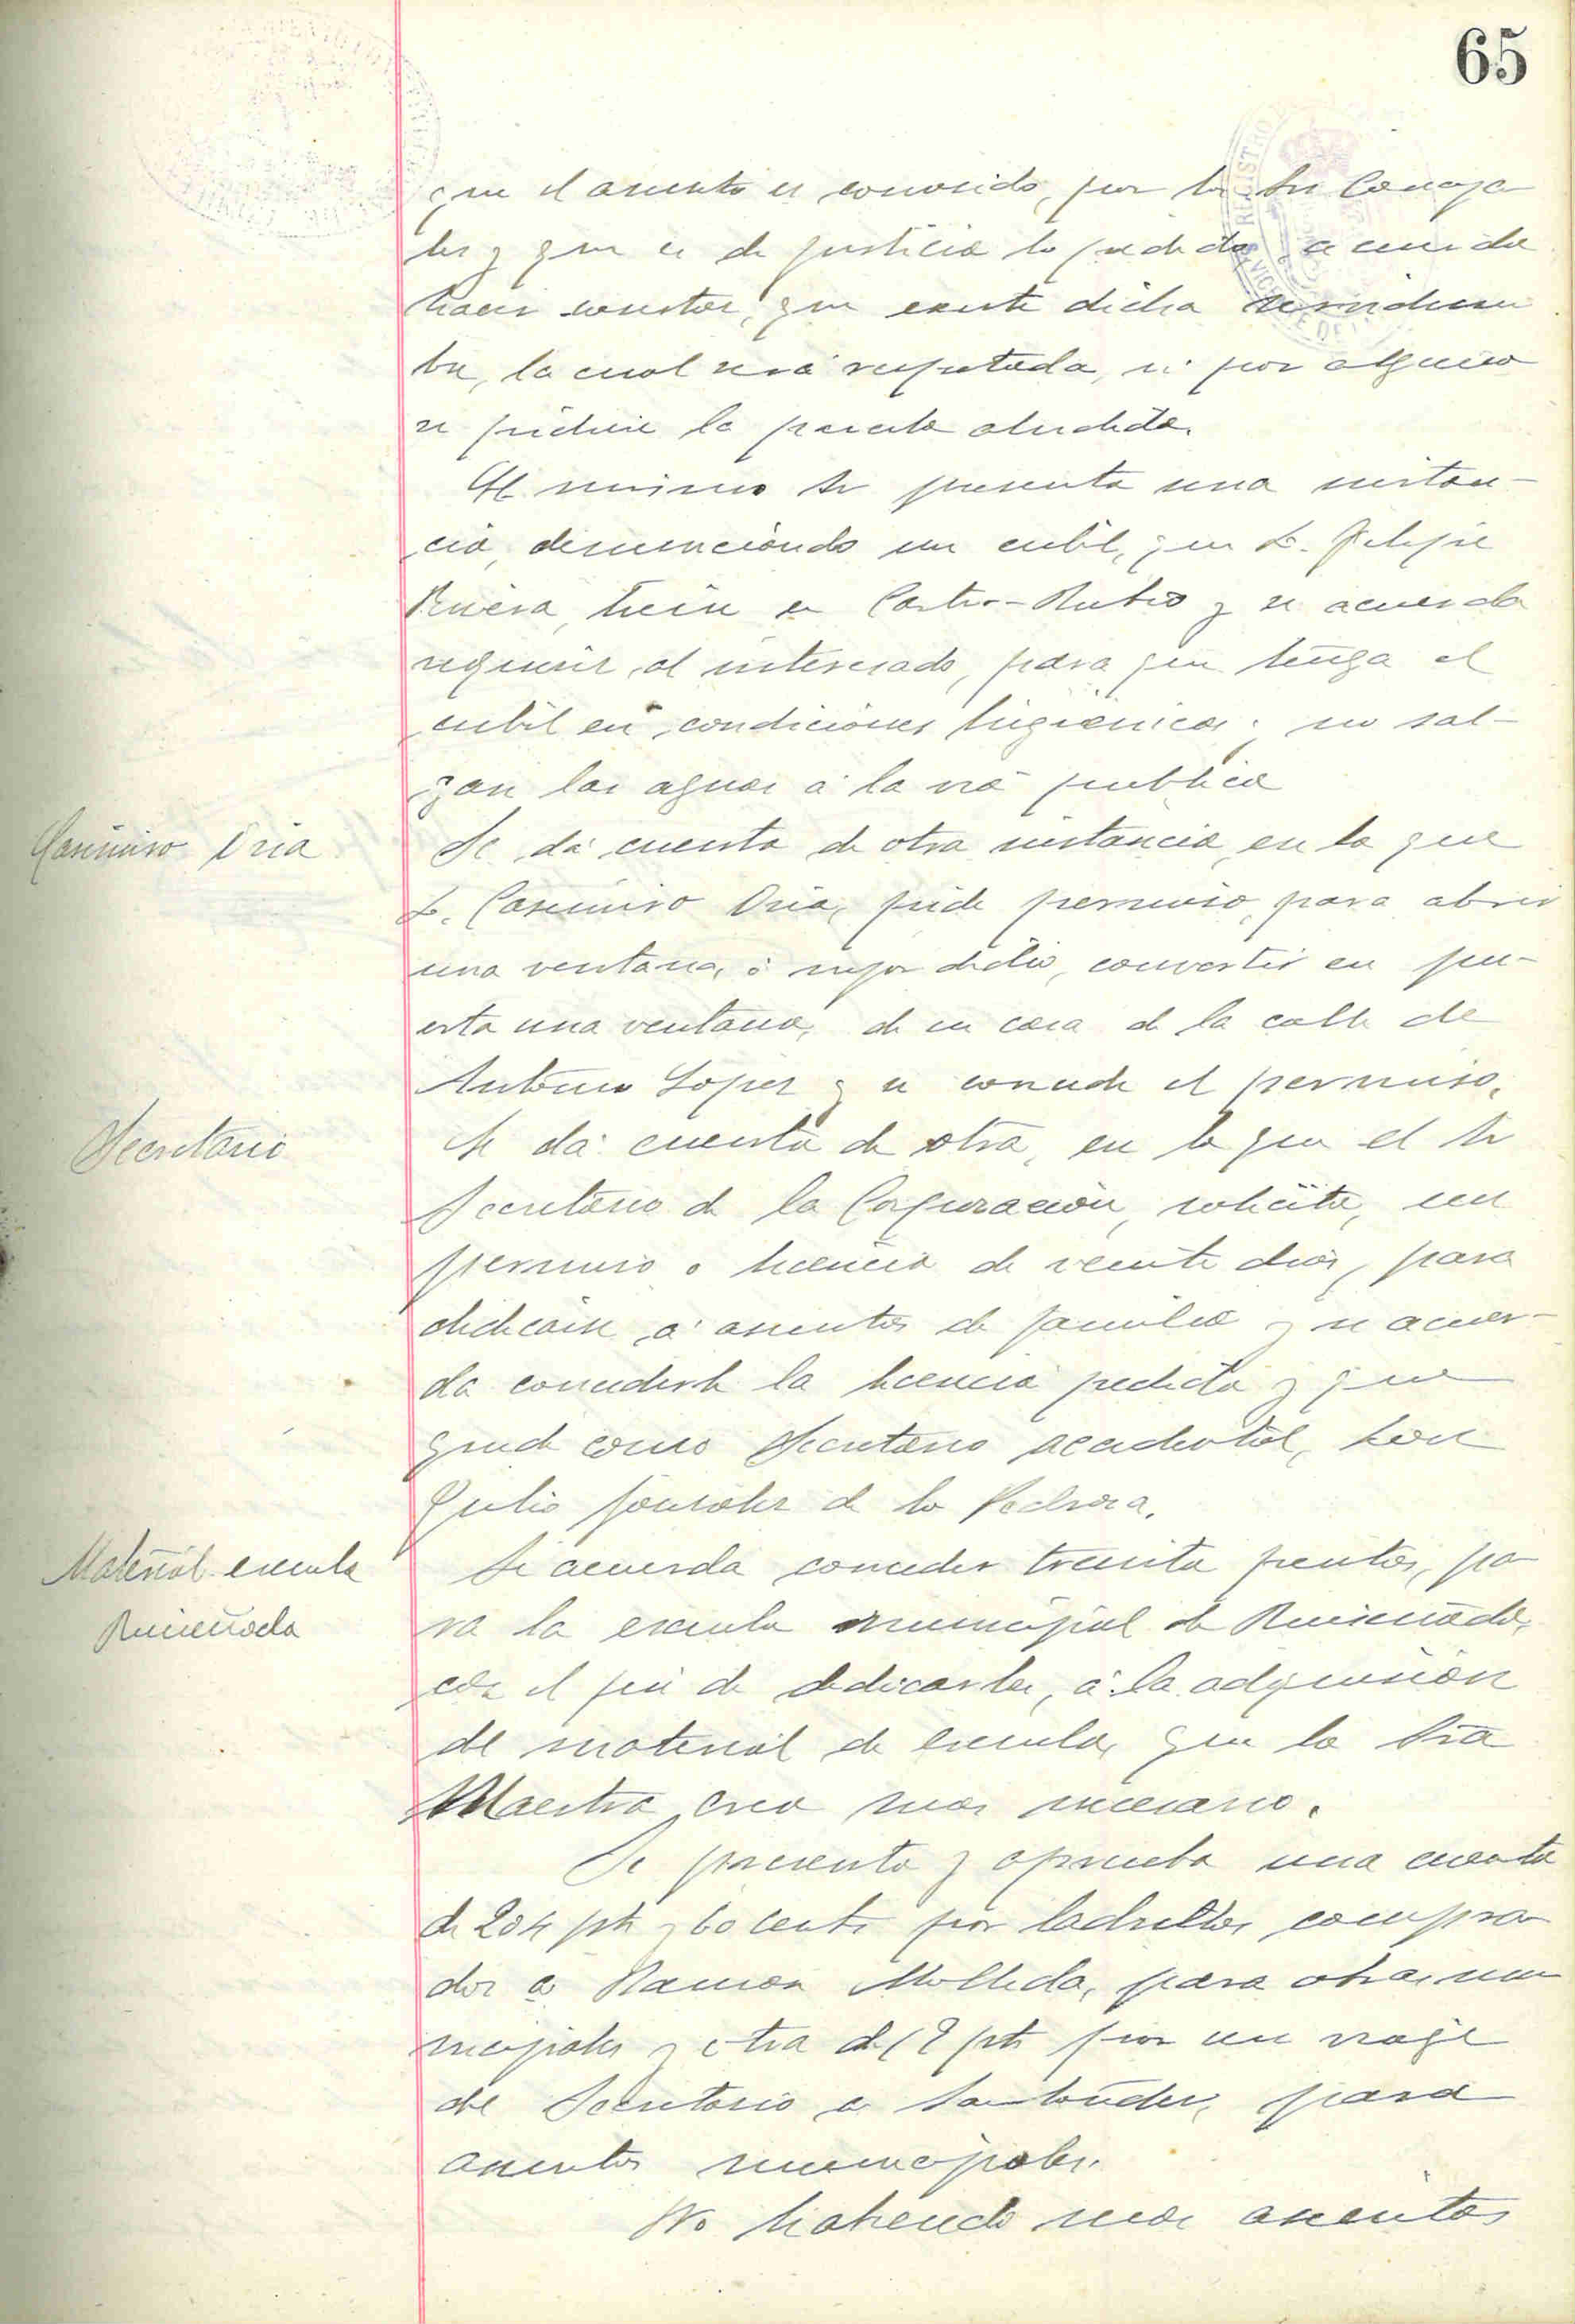 65
que el asunto es conocido, por los Sres Conceja
les y que es de justicia lo pedido, acuerda
hacer constar, que existe dicha servidum
bre, la cual será respetada, si por alguno
se pidiere la puerta aludida.
Al mismo se presenta una instan-
cia, denunciando un cubil, que D. Felipe
Rivera, tiene en Castro-Rubio y se acuerda
requerir al interesado, para que tenga el
cubil en condiciones higienicas y no sal-
gan las aguas á la via publica
Casimiro Oria
Se dá cuenta de otra instancia, en la que
D. Casimiro Oria, pide permiso, para abrir
una ventana, ó mejor dicho, convertir en pu-
erta una ventana, de su casa de la calle de
Antonio Lopez y se concede el permiso.
Secretario
Se dá cuenta de otra, en la que el Sr
Secretario de la Corporación, solicita, un
permiso o licencia de veinte dias, para
dedicarse, á asuntos de familia y se acuer-
da concederle la licencia pedida y que
quede como Secretario accidental, Don
Julio Gonzalez de la Pedrosa.
Material escuela
Ruiseñada
Se acuerda conceder treinta pesetas, pa
ra la escuela municipal de Ruiseñada,
con el fin de dedicarlas, á la adquisición
del material de escuela, que la Sra
Maestra crea mas necesario.
Se presenta y aprueba una cuenta
de 204 pts y 60 cents por ladrillos compra
dos a Ramon Molleda, para obras mu
nicipales y otra de 12 pts por un viaje
del Secretario a Santander, para
asuntos municipales.
No habiendo mas asuntos